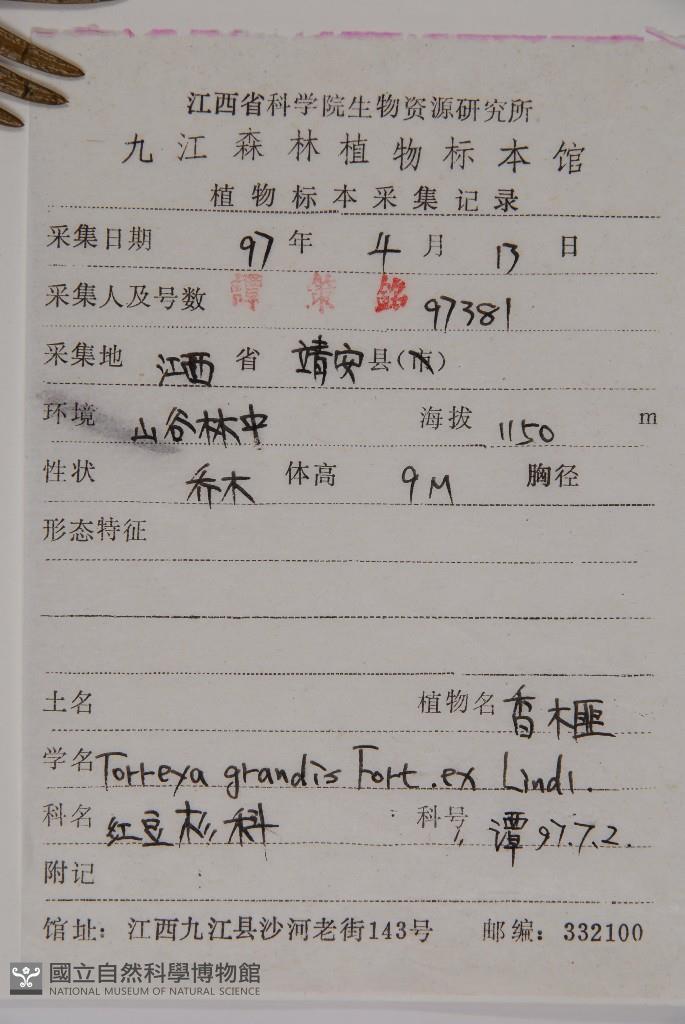 江西省科学院生物资源研究所
九江森林植物标本馆
植物标本采集记录
采集日期 97 年 4 月 13 日
采集人及号数 譚策銘 97381
采集地 江西 省 靖安 县(市)
环境 山谷林中 海拔 1150 m
性状 乔木 体高 9M 胸径
形态特征
土名 植物名 香榧
学名 Torreya grandis Fort. ex Lindl.
科名 红豆杉科 科号 谭 97.7.2.
附记
馆址：江西九江县沙河老街143号 邮编：332100
國立自然科學博物館
NATIONAL MUSEUM OF NATURAL SCIENCE